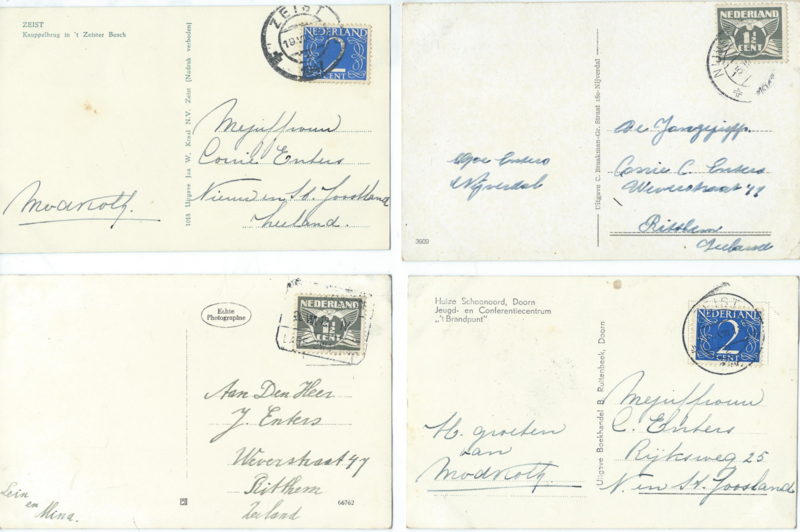 ZEIST
Knuppelbrug in 't Zeister Bosch
10th Uitgave Jos W. Kraal N.V. Zeist (Nadruk verboden)
ZEIST
NEDERLAND
2
CENT
Mejuffrouw
Corrie Enters
Nieuw en St. Joosland
Zeeland.
NEDERLAND
1½
CENT
Uitgave C. Braakman-Gr. Straat 16c-Nijverdal
Enters
Nijverdal
Corrie C. Enters
Weverstraat 47
Ritthem
Zeeland
3909
Echte
Photographie
NEDERLAND
1½
CENT
Aan Den Heer
J. Enters
Weverstraat 47
Ritthem
Zeeland
Lein
en
Mina.
66762
Huize Schoonoord, Doorn
Jeugd- en Conferentiecentrum
„'t Brandpunt"
Uitgave Boekhandel B. Ruitenbeek, Doorn
ZEIST
NEDERLAND
2
CENT
H. groeten
van
Mejuffrouw
C. Enters
Rijksweg 25
N. en St. Joosland